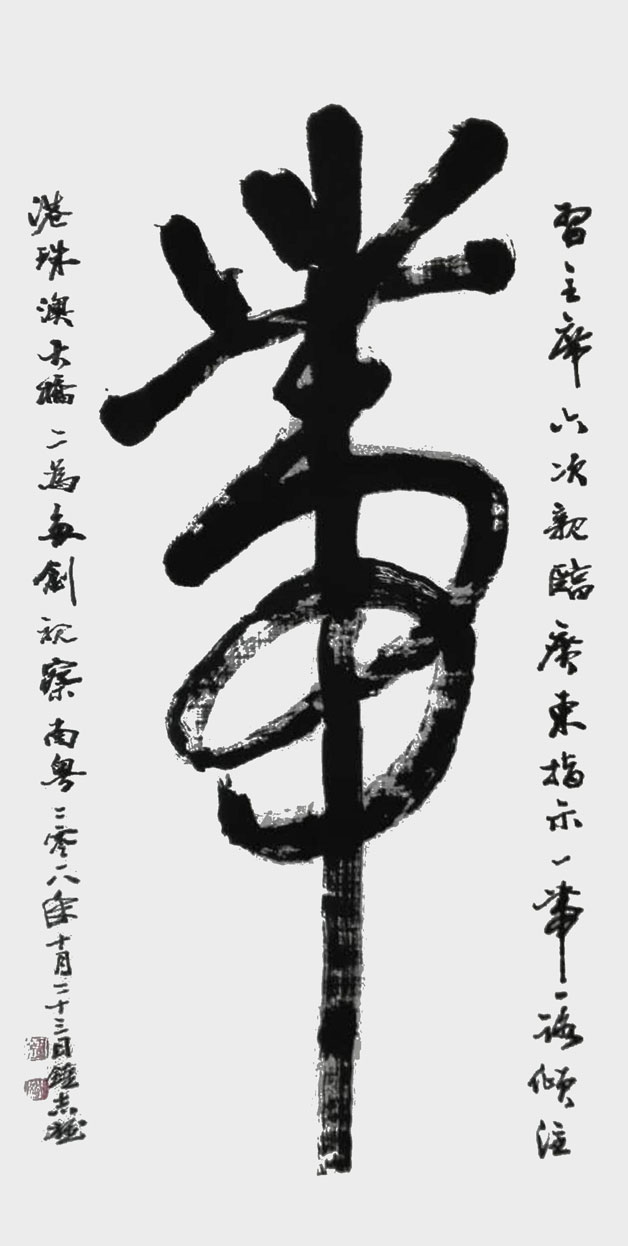 習主席六次親臨廣東指示一帶一路傾注
帶
港珠澳大橋二為創視察南粵二零一八年十月二十三日鍾志